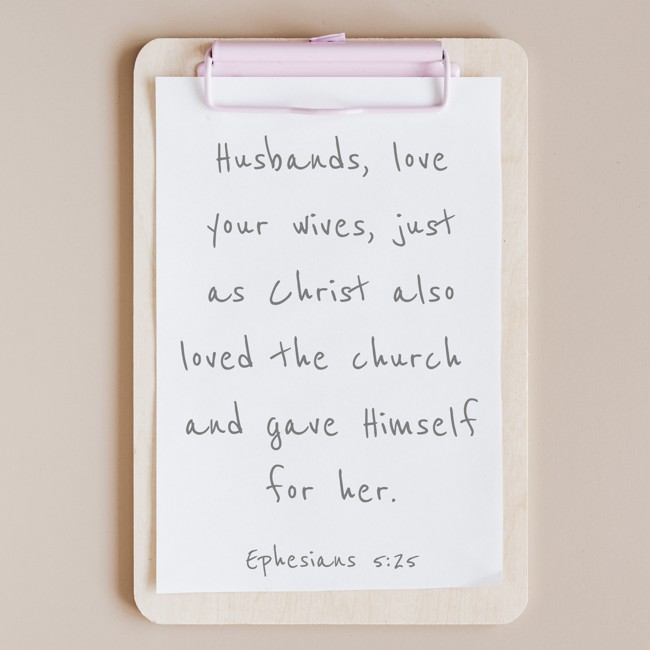 Husbands, love
your wives, just
as Christ also
loved the church
and gave Himself
for her.
Ephesians 5:25